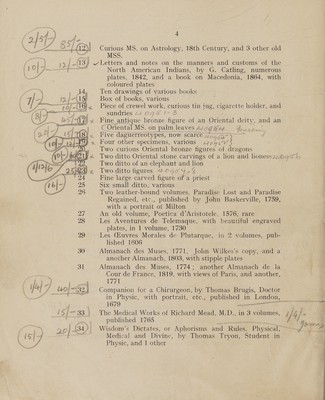 4
2/5/- 35/- 12 Curious MS. on Astrology, 18th Century, and 3 other old
MSS.
10/- 12/- 13 Letters and notes on the manners and customs of the
North American Indians, by G. Catling, numerous
plates, 1842, and a book on Macedonia, 1864, with
coloured plates
14 Ten drawings of various books
7/- 12/- 15 Box of books, various
16 Piece of crewel work, curious tin jug, cigarette holder, and
sundries
17 Fine antique bronze figure of an Oriental deity, and an
Oriental MS. on palm leaves
20/- 15/- 18 Five daguerreotypes, now scarce
19 Four other specimens, various
20 Two curious Oriental bronze figures of dragons
21 Two ditto Oriental stone carvings of a lion and lioness
22 Two ditto of an elephant and lion
23 Two ditto figures
24 Fine large carved figure of a priest
16/- 25 Six small ditto, various
26 Two leather-bound volumes, Paradise Lost and Paradise
Regained, etc., published by John Baskerville, 1759,
with a portrait of Milton
27 An old volume, Poetica d'Aristotele, 1576, rare
28 Les Aventures de Telemaque, with beautiful engraved
plates, in 1 volume, 1730
29 Les Œuvres Morales de Plutarque, in 2 volumes, pub-
lished 1606
30 Almanach des Muses, 1771, John Wilkes's copy, and a
another Almanach, 1803, with stipple plates
31 Almanach des Muses, 1774; another Almanach de la
Cour de France, 1819, with views of Paris, and another,
1771
1/4/- 40/- 32 Companion for a Chirurgeon, by Thomas Brugis, Doctor
in Physic, with portrait, etc., published in London,
1679
15/- 33 The Medical Works of Richard Mead, M.D., in 3 volumes,
published 1765
1/4/-
15/- 20/- 34 Wisdom's Dictates, or Aphorisms and Rules, Physical,
Medical and Divine, by Thomas Tryon, Student in
Physic, and 1 other